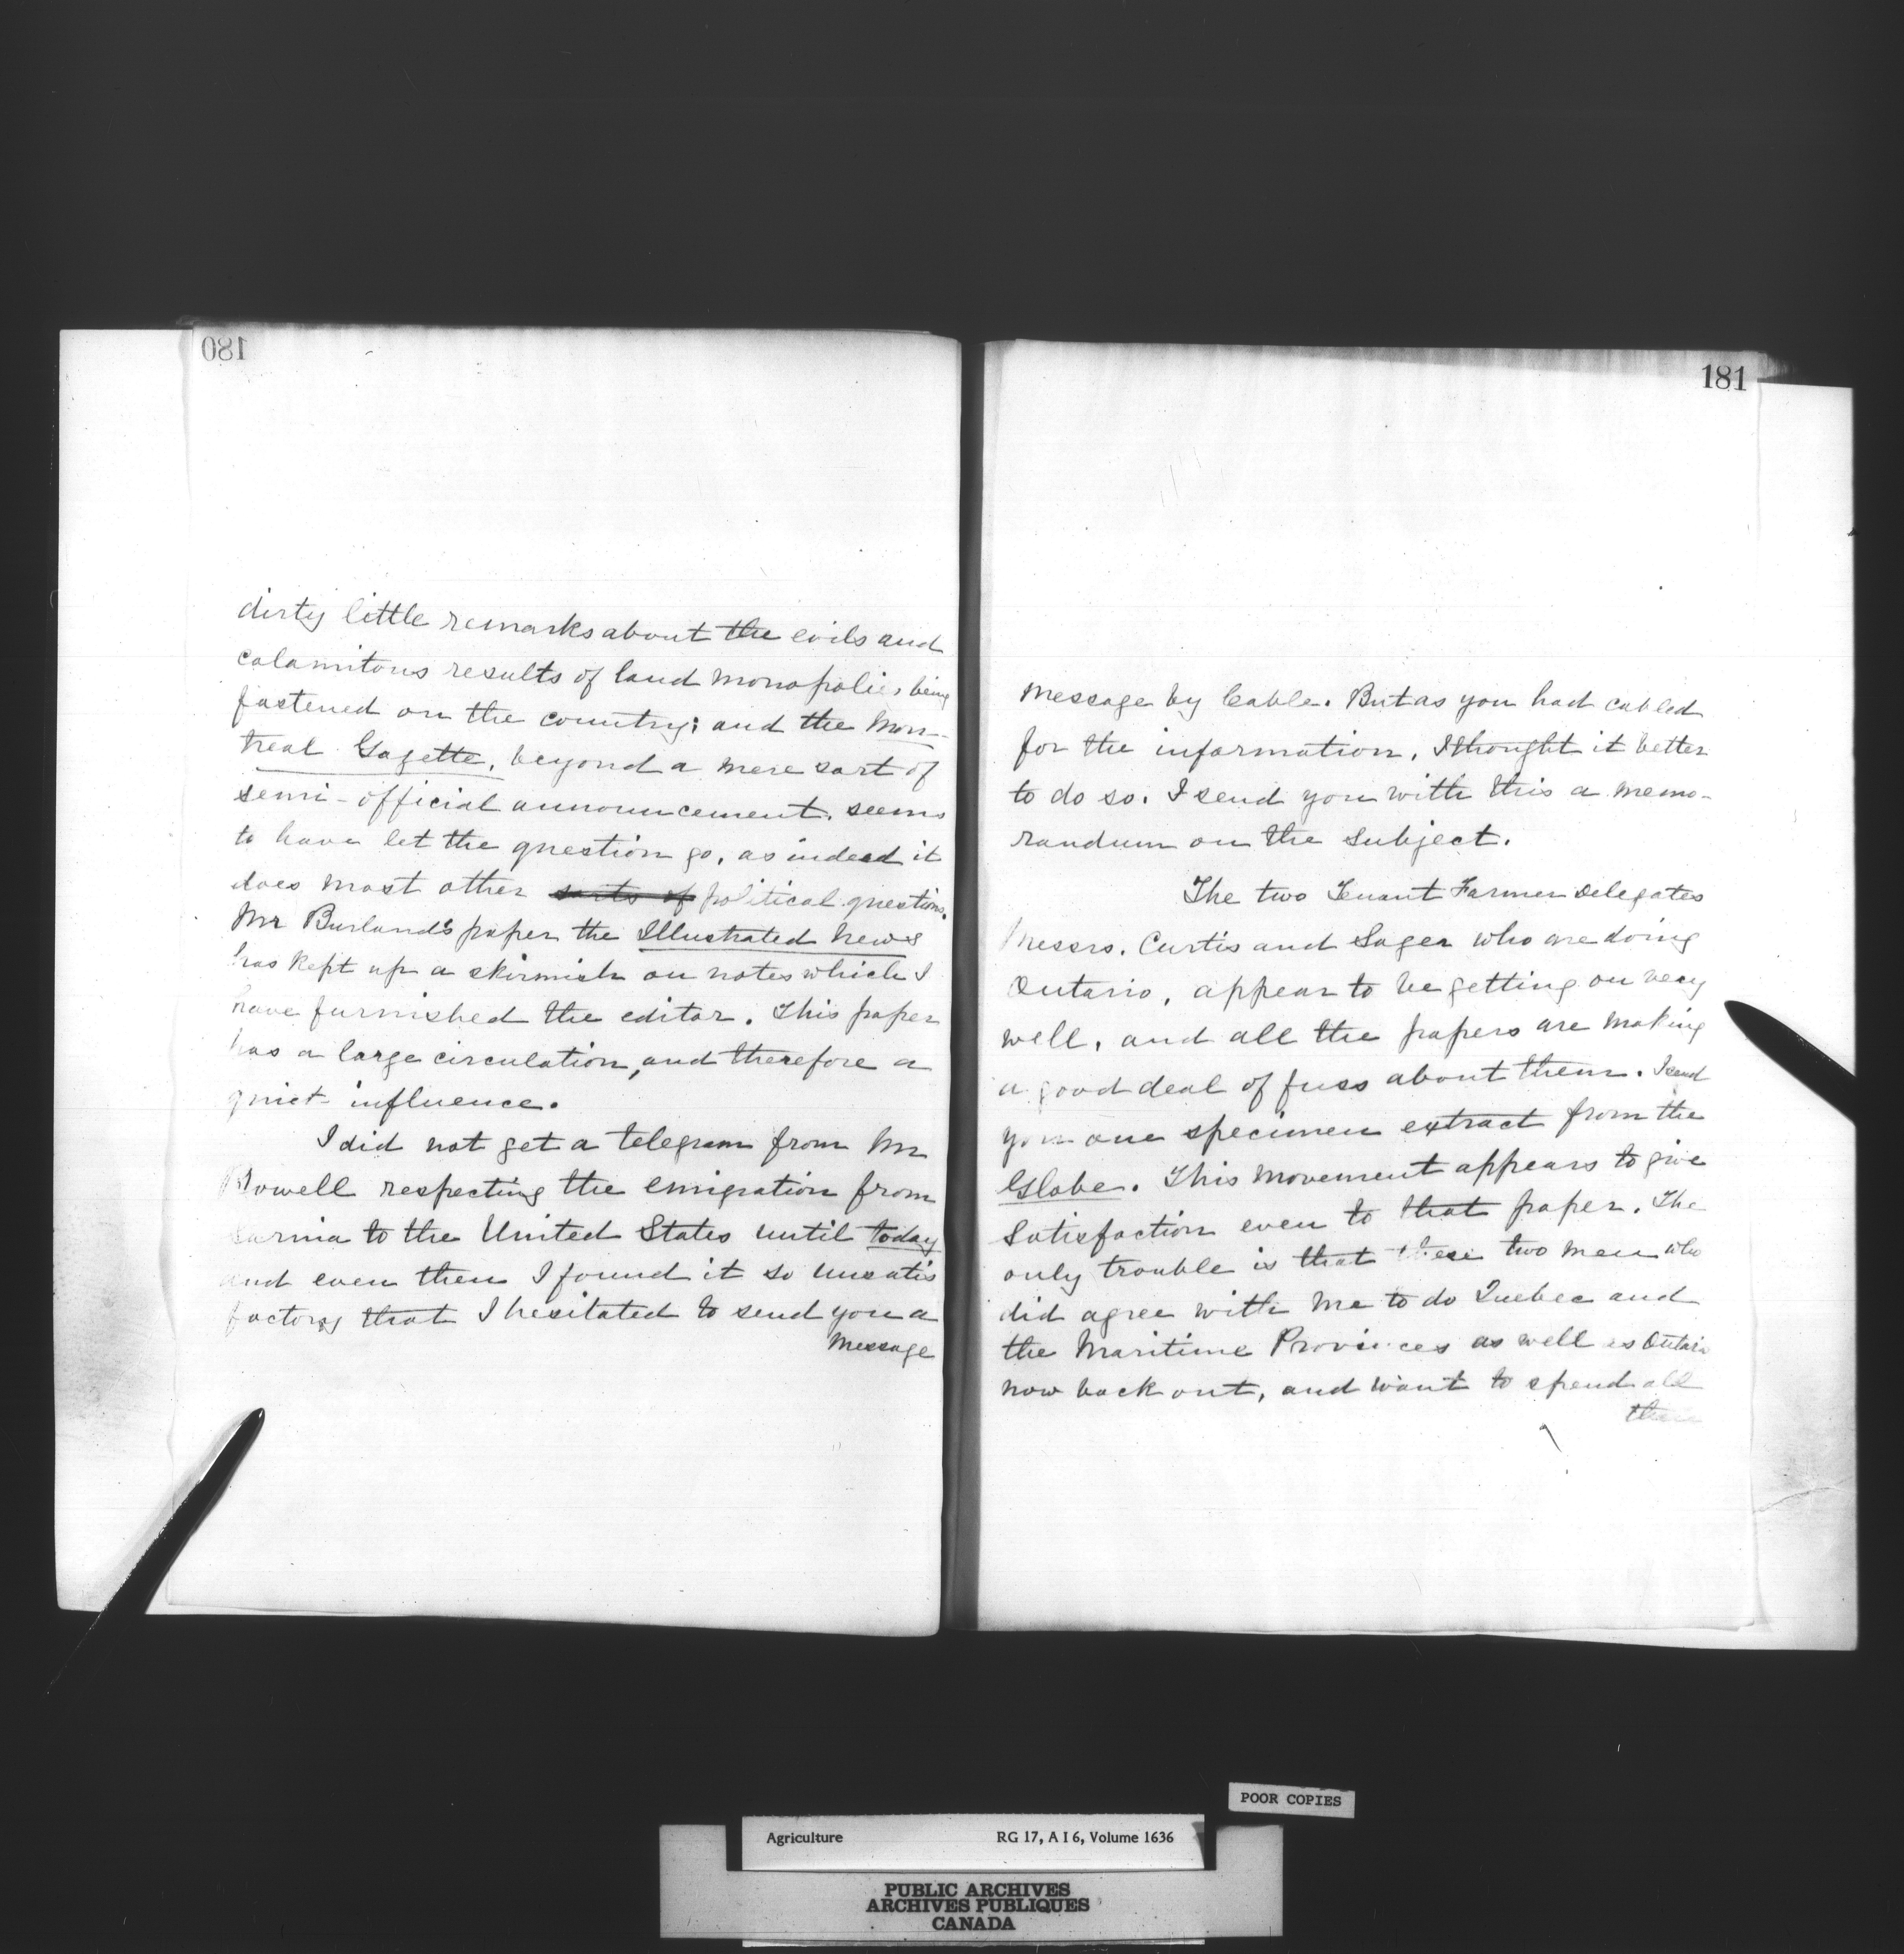 180
dirty little remarks about the evils and
calamitous results of land monopolies being
fastened on the country; and the Mon-
treal Gazette, beyond a mere sort of
semi-official announcement, seems
to have let the question go, as indeed it
does most other sorts of political questions.
Mr Burland's paper the Illustrated News
has kept up a skirmish on notes which I
have furnished the editor. This paper
has a large circulation, and therefore a
quiet influence.
I did not get a telegram from Mr
Bowell respecting the emigration from
Sarnia to the United States until today
and even then I found it so unsatis
factory that I hesitated to send you a
message
181
message by Cable. But as you had cabled
for the information, I thought it better
to do so. I send you with this a memo-
randum on the subject.
The two Tenant Farmer Delegates
Messrs. Curtis and Sager who are doing
Ontario, appear to be getting on very
well, and all the papers are making
a good deal of fuss about them. I send
you one specimen extract from the
Globe. This movement appears to give
satisfaction even to that paper. The
only trouble is that these two men who
did agree with me to do Quebec and
the Maritime Provinces as well as Ontario
now back out, and want to spend all
POOR COPIES
Agriculture RG 17, A I 6, Volume 1636
PUBLIC ARCHIVES
ARCHIVES PUBLIQUES
CANADA